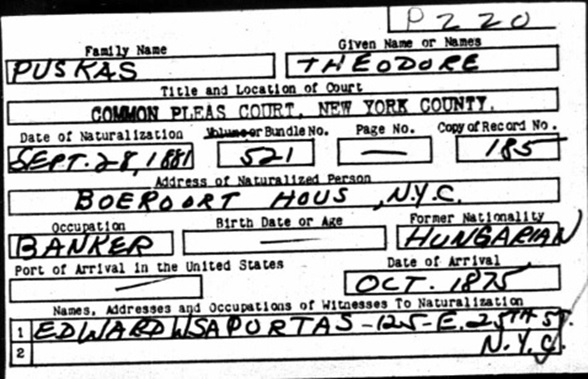 P220
Family Name Given Name or Names
PUSKAS THEODORE
Title and Location of Court
COMMON PLEAS COURT, NEW YORK COUNTY.
Date of Naturalization Volume or Bundle No. Page No. Copy of Record No.
SEPT. 28, 1881 521 — 185
Address of Naturalized Person
BOERDORT HOUS, N.Y.C.
Occupation Birth Date or Age Former Nationality
BANKER — HUNGARIAN
Port of Arrival in the United States Date of Arrival
— OCT. 1875
Names, Addresses and Occupations of Witnesses To Naturalization
1 EDWARD WSAPORTAS - 125 - E. 25TH ST.
2 N.Y.C.